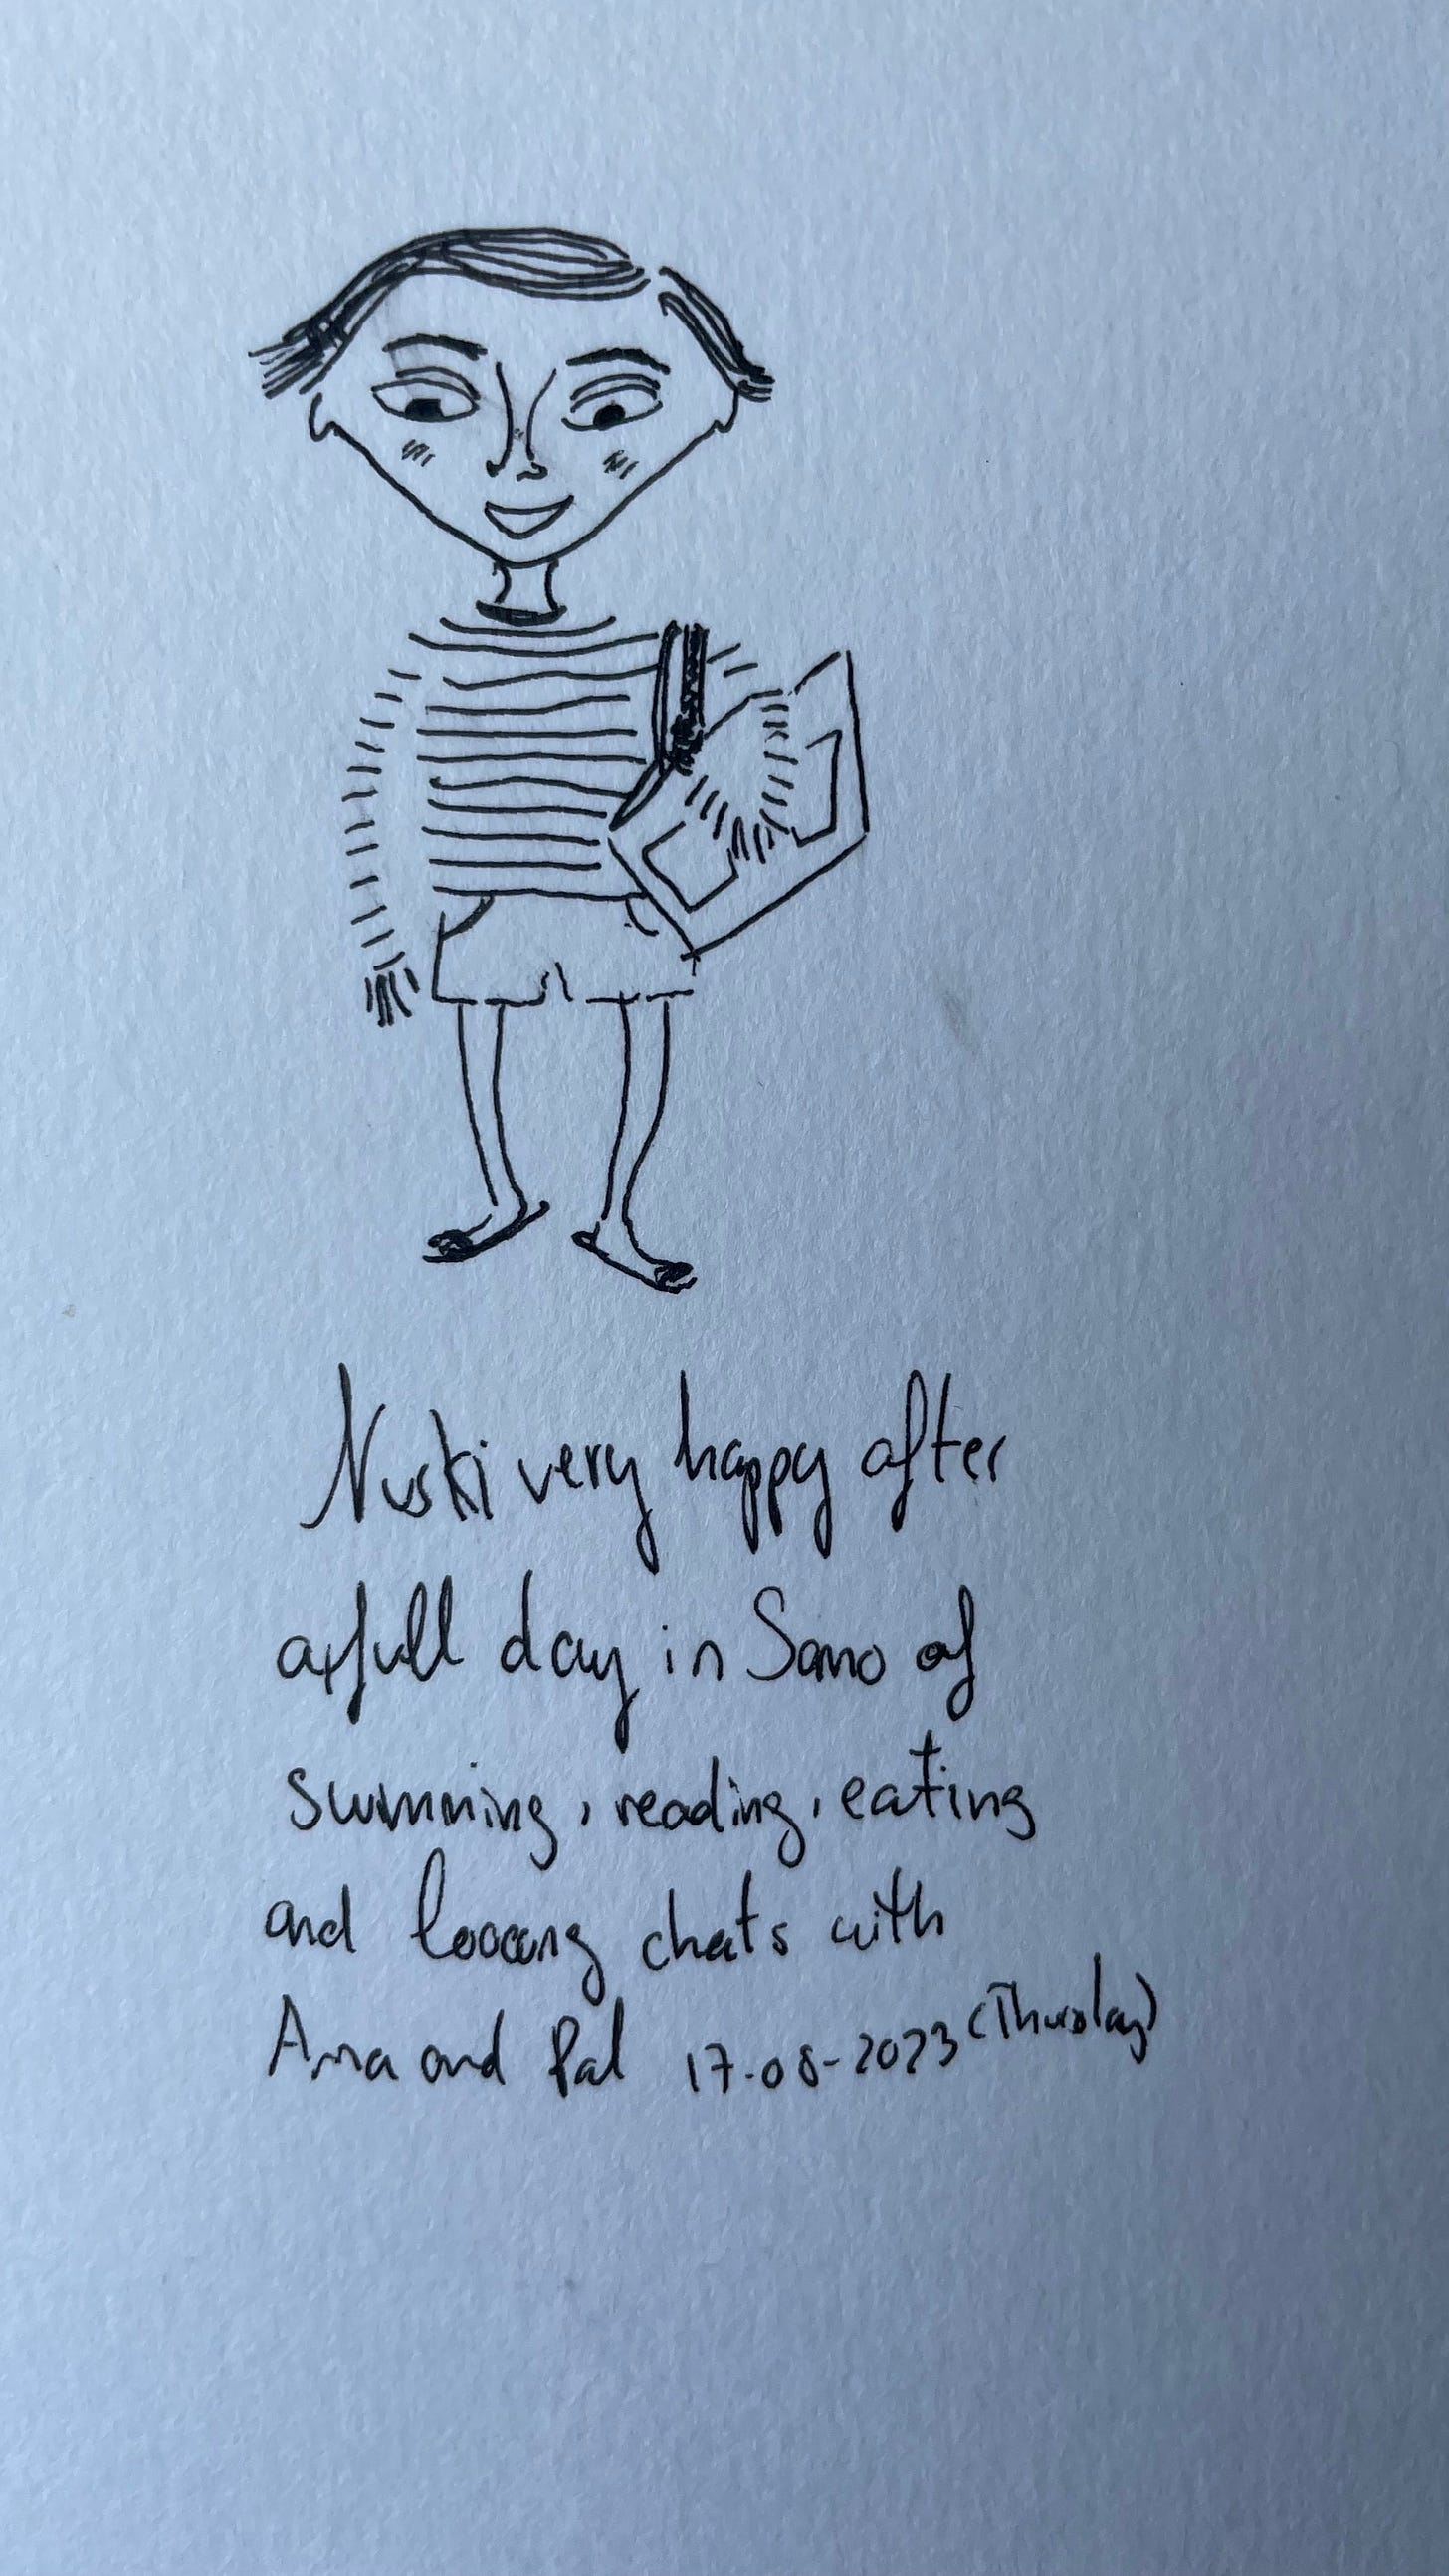 Nuski very happy after
a full day in Somo of
swimming, reading, eating
and looooong chats with
Ana and Pal 17-08-2023 (Thursday)